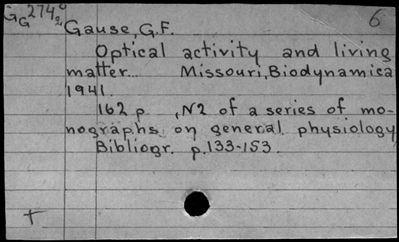 GG274º 6
Gause, G.F.
Optical activity and living
matter... Missouri, Biodynamica
1941.
162 p. , N2 of a series of mo-
nographs on general physiology
Bibliogr. p.133-153.
+